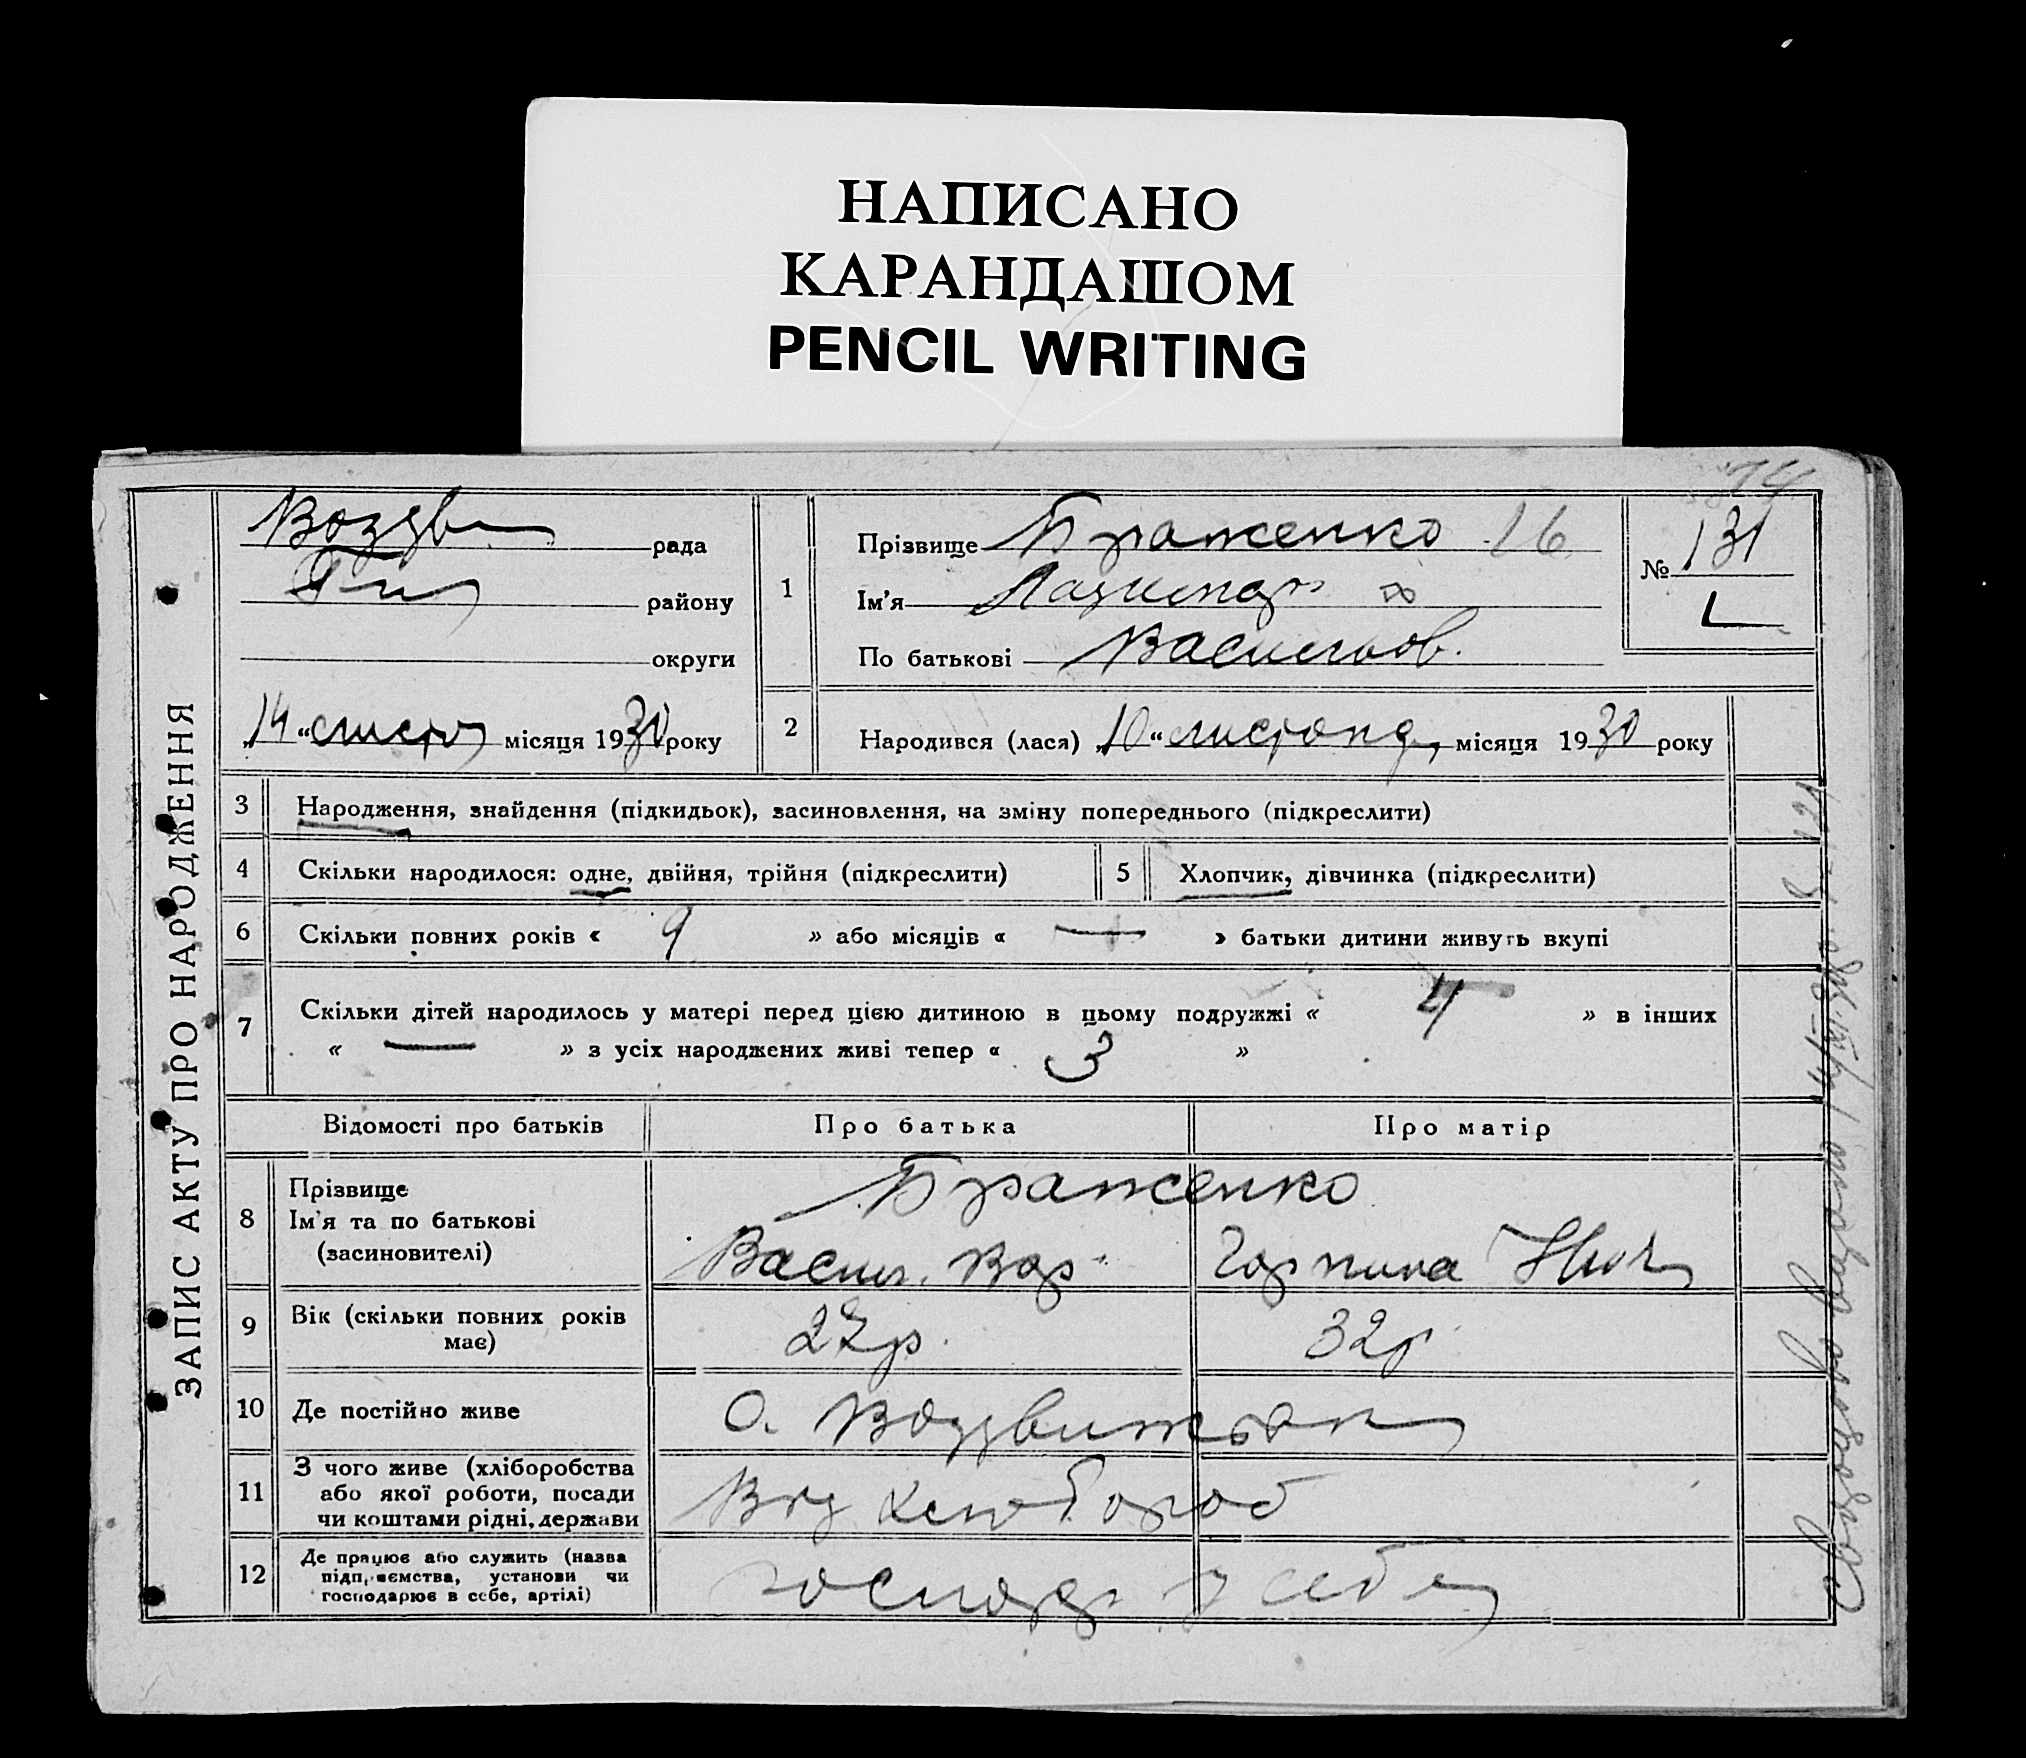 НАПИСАНО
КАРАНДАШОМ
PENCIL WRITING
ЗАПИС АКТУ ПРО НАРОДЖЕННЯ
рада
району
округи
„14“ листо місяця 1930 року
1
Прізвище Браженко 16
Ім'я
По батькові Васильов.
№ 131
2 Народився (лася) „10“ листопад, місяця 1930 року
3 Народження, знайдення (підкидьок), засиновлення, на зміну попереднього (підкреслити)
4 Скільки народилося: одне, двійня, трійня (підкреслити)
5 Хлопчик, дівчинка (підкреслити)
6 Скільки повних років « 9 » або місяців « — » батьки дитини живуть вкупі
7 Скільки дітей народилось у матері перед цією дитиною в цьому подружжі « 4 » в інших
« — » з усіх народжених живі тепер « 3 »
Відомості про батьків
Про батька
Про матір
8 Прізвище
Ім'я та по батькові
(засиновителі)
Браженко
Васил. Вар
Горпина
9 Вік (скільки повних років
має)
27р.
32р
10 Де постійно живе
11 З чого живе (хліборобства
або якої роботи, посади
чи коштами рідні, держави
Від хлібороб
12 Де працює або служить (назва
підприємства, установи чи
господарює в себе, артілі)
господ. у себе